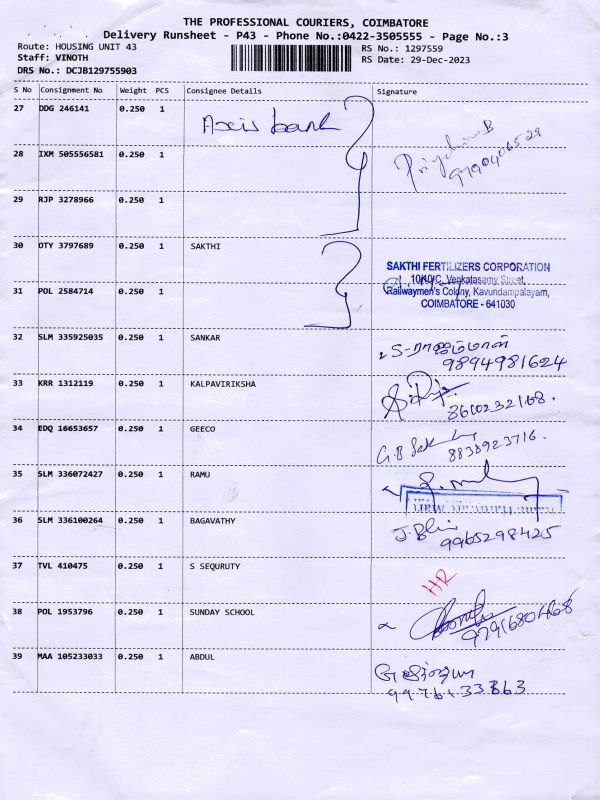 THE PROFESSIONAL COURIERS, COIMBATORE
Delivery Runsheet - P43 - Phone No.:0422-3505555 - Page No.:3
Route: HOUSING UNIT 43 RS No.: 1297559
Staff: VINOTH RS Date: 29-Dec-2023
DRS No.: DCJB129755903
S No Consignment No Weight PCS Consignee Details Signature
27 DDG 246141 0.250 1 Axis bank
28 IXM 505556581 0.250 1
29 RJP 3278966 0.250 1
30 OTY 3797689 0.250 1 SAKTHI
SAKTHI FERTILIZERS CORPORATION
10/10/C, Venkatasamy Street,
31 POL 2584714 0.250 1 Railwaymen's Colony, Kavundampalayam,
COIMBATORE - 641030
32 SLM 335925035 0.250 1 SANKAR
9894981624
33 KRR 1312119 0.250 1 KALPAVIRIKSHA
8600232168.
34 EDQ 16653657 0.250 1 GEECO
8838923716.
35 SLM 336072427 0.250 1 RAMU
36 SLM 336100264 0.250 1 BAGAVATHY
9965298425
37 TVL 410475 0.250 1 S SEQURUTY HR
38 POL 1953796 0.250 1 SUNDAY SCHOOL
39 MAA 105233033 0.250 1 ABDUL